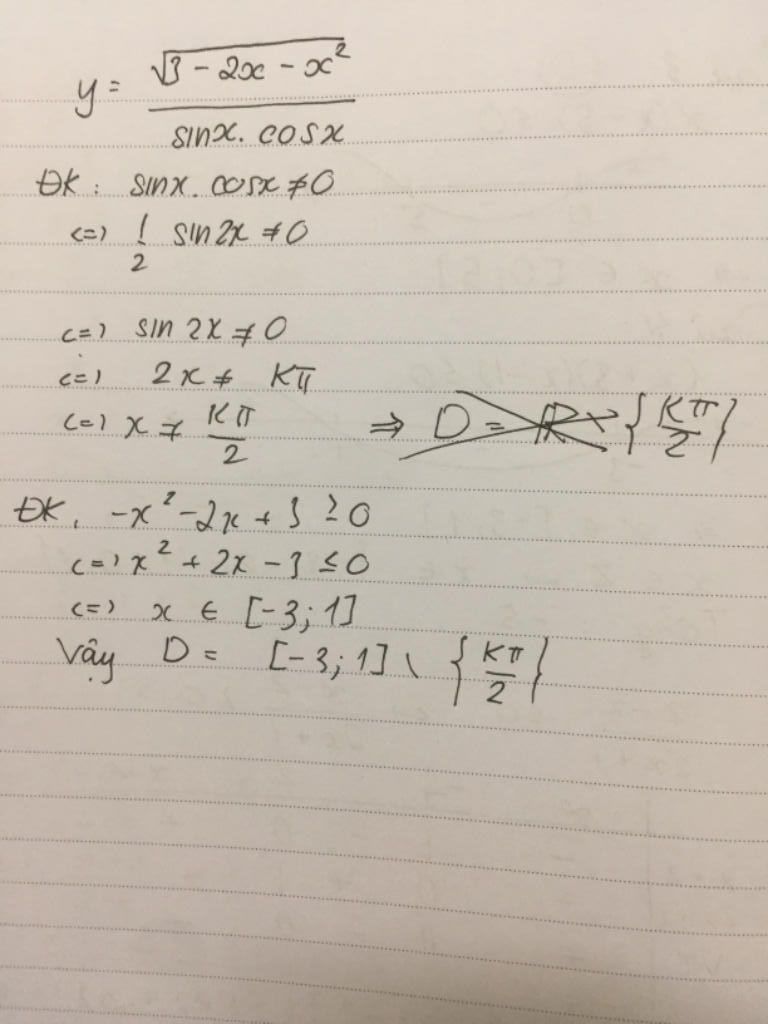 y = √(3 - 2x - x²) / (sinx. cosx)
ĐK: sinx. cosx ≠ 0
<=> 1/2 sin2x ≠ 0
<=> sin 2x ≠ 0
<=> 2x ≠ kπ
<=> x ≠ kπ/2 => D = R \ {kπ/2}
ĐK, -x² - 2x + 3 ≥ 0
<=> x² + 2x - 3 ≤ 0
<=> x ∈ [-3; 1]
Vậy D = [-3; 1] \ {kπ/2}